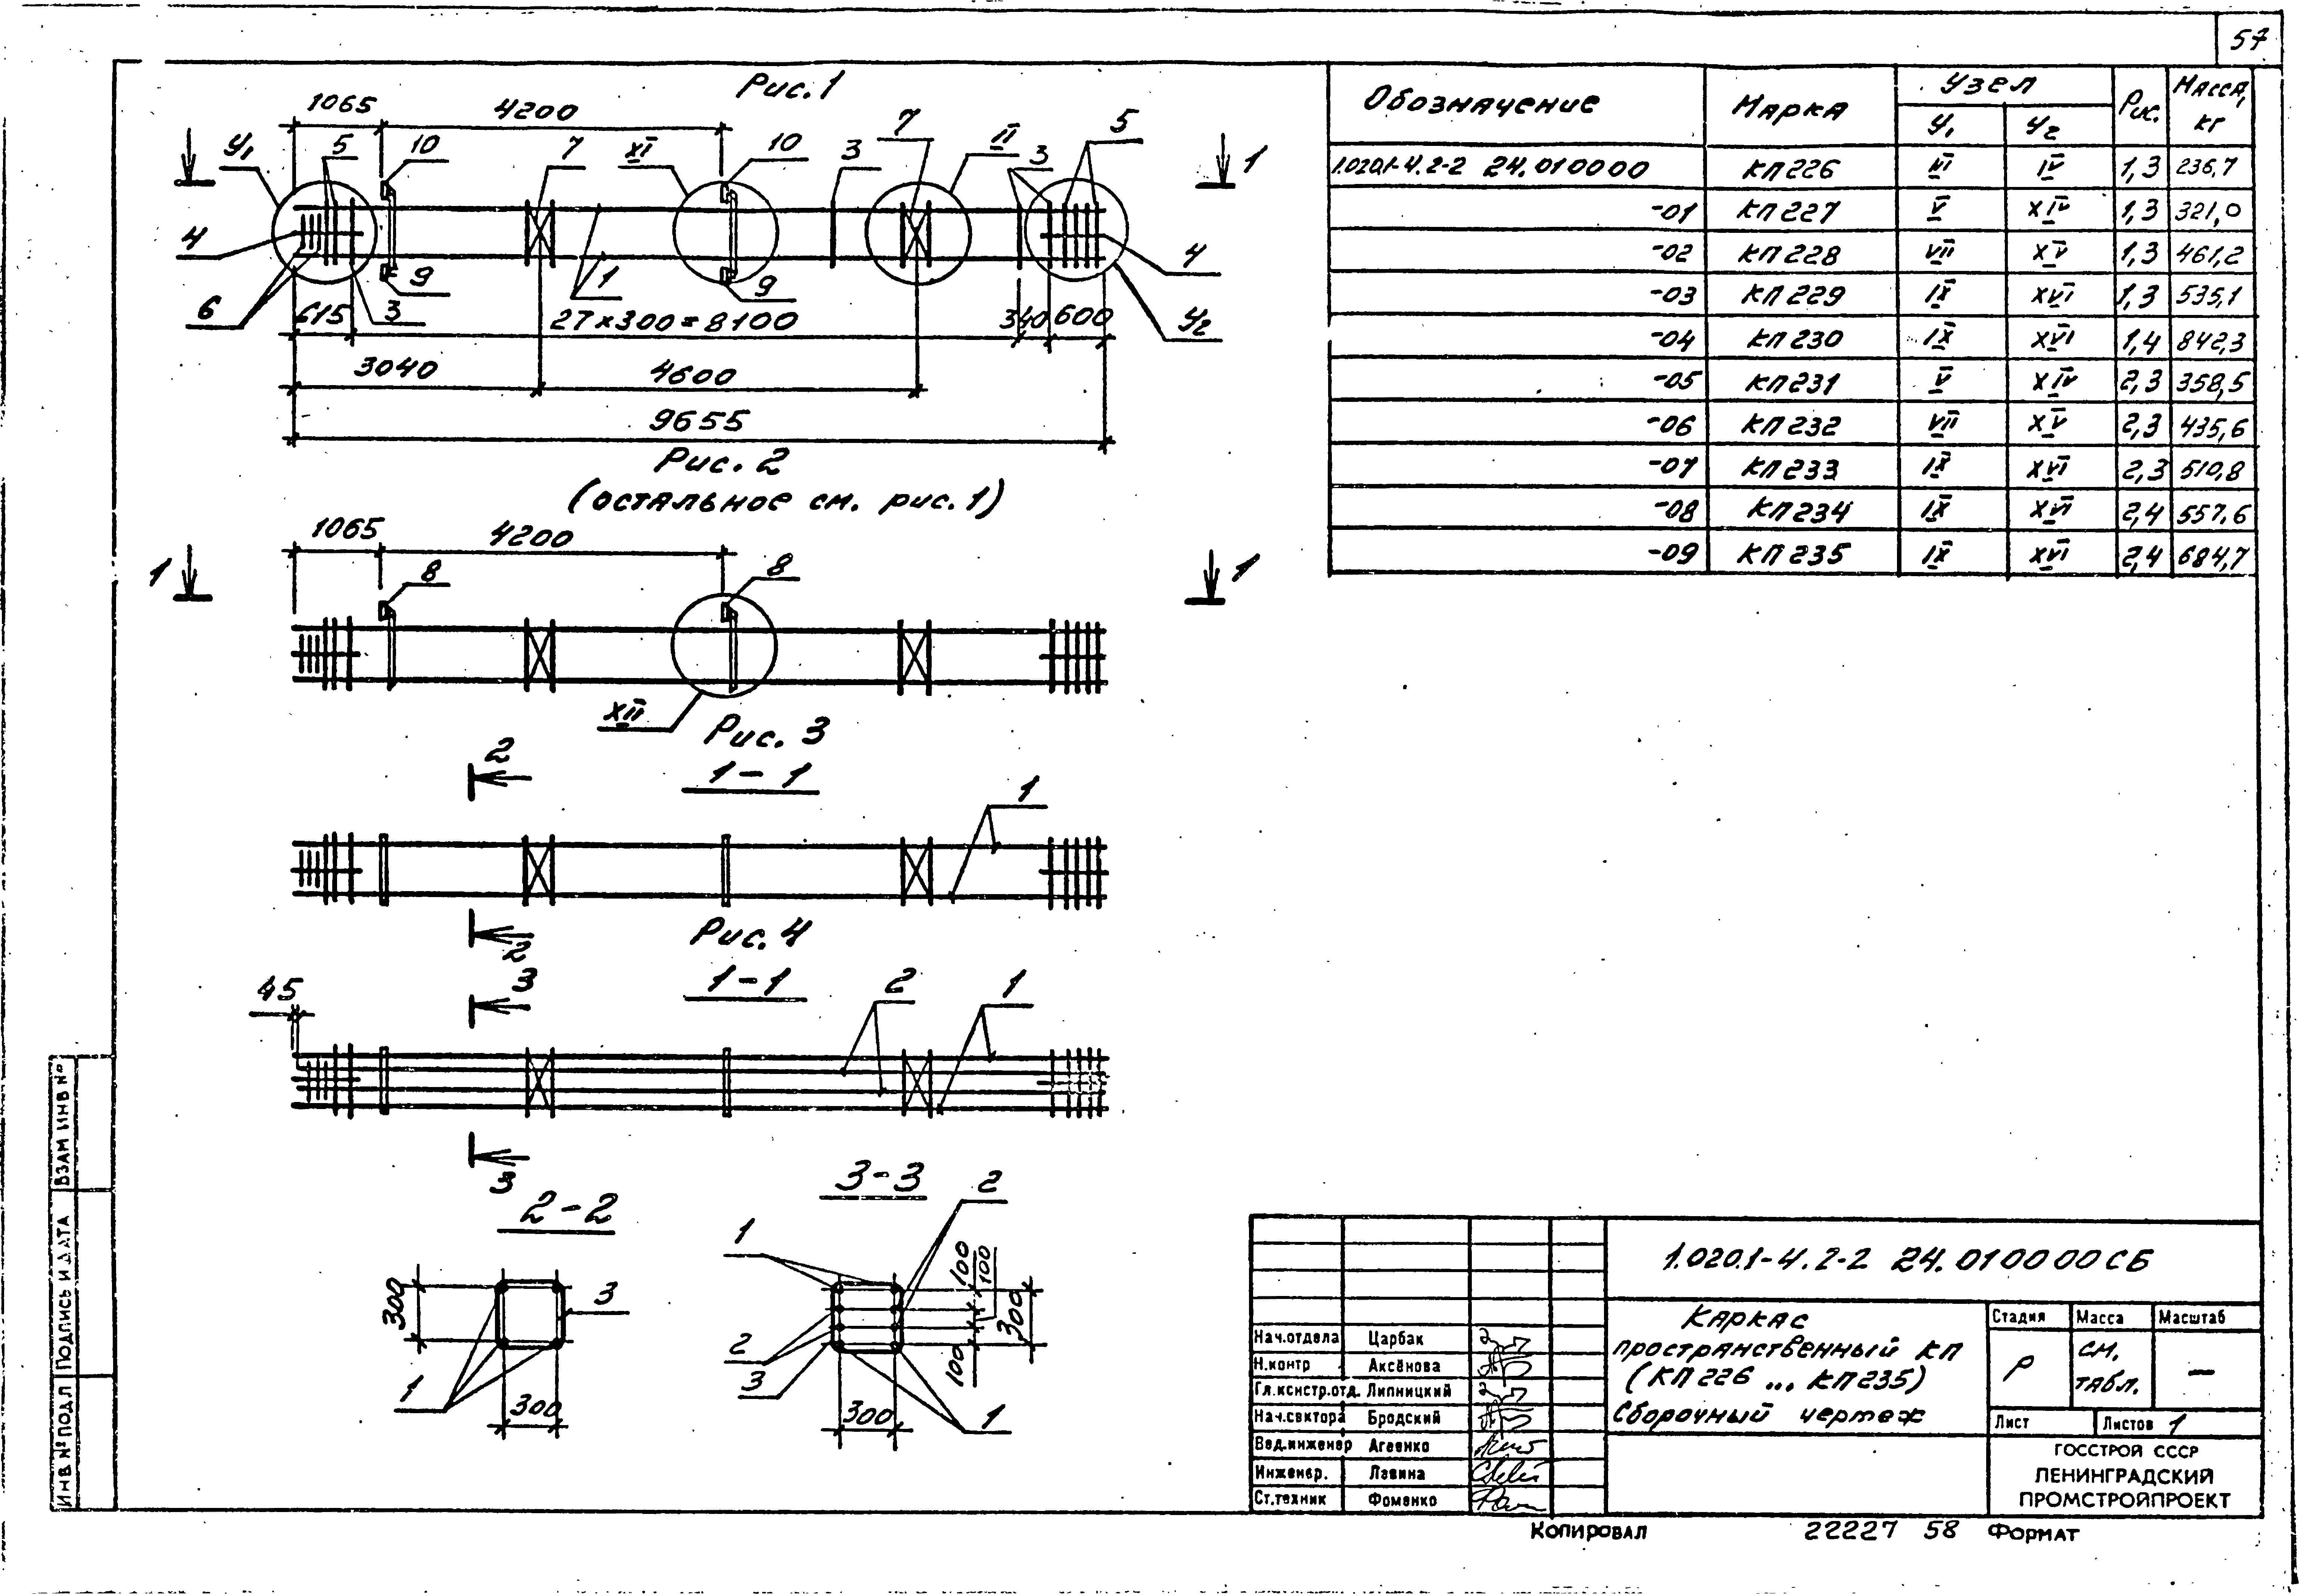 57
Рис. 1
1065
4200
У1
5
10
7
XI
10
3
7
II
3
5
1
1
4
6
9
1
9
4
У2
615
3
27×300=8100
340
600
3040
4600
9655
Рис. 2
(остальное см. рис. 1)
1065
4200
1
8
8
1
XII
Рис. 3
1-1
2
1
2
Рис. 4
1-1
45
3
2
1
3
2-2
300
3
1
300
3-3
2
1
100
100
300
2
3
100
300
1
Обозначение Марка Узел Рис. Масса, кг
У1 У2
1.020.1-4.2-2 24.010000 КП226 VI IV 1,3 236,7
-01 КП227 V XIV 1,3 321,0
-02 КП228 VII XV 1,3 461,2
-03 КП229 IX XVI 1,3 535,1
-04 КП230 IX XVI 1,4 842,3
-05 КП231 V XIV 2,3 358,5
-06 КП232 VII XV 2,3 435,6
-07 КП233 IX XVI 2,3 510,8
-08 КП234 IX XVI 2,4 557,6
-09 КП235 IX XVI 2,4 684,7
Взам инв №
Подпись и дата
Инв № подл
1.020.1-4.2-2 24.010000СБ
Каркас
пространственный КП
(КП226 ... КП235)
Сборочный чертеж
Стадия Масса Масштаб
Р см. табл. —
Лист Листов 1
ГОССТРОЙ СССР
ЛЕНИНГРАДСКИЙ
ПРОМСТРОЙПРОЕКТ
Нач.отдела Царбак
Н.контр Аксёнова
Гл.констр.отд. Липницкий
Нач.сектора Бродский
Вед.инженер Агеенко
Инженер. Лавина
Ст.техник Фоменко
Копировал 22227 58 Формат